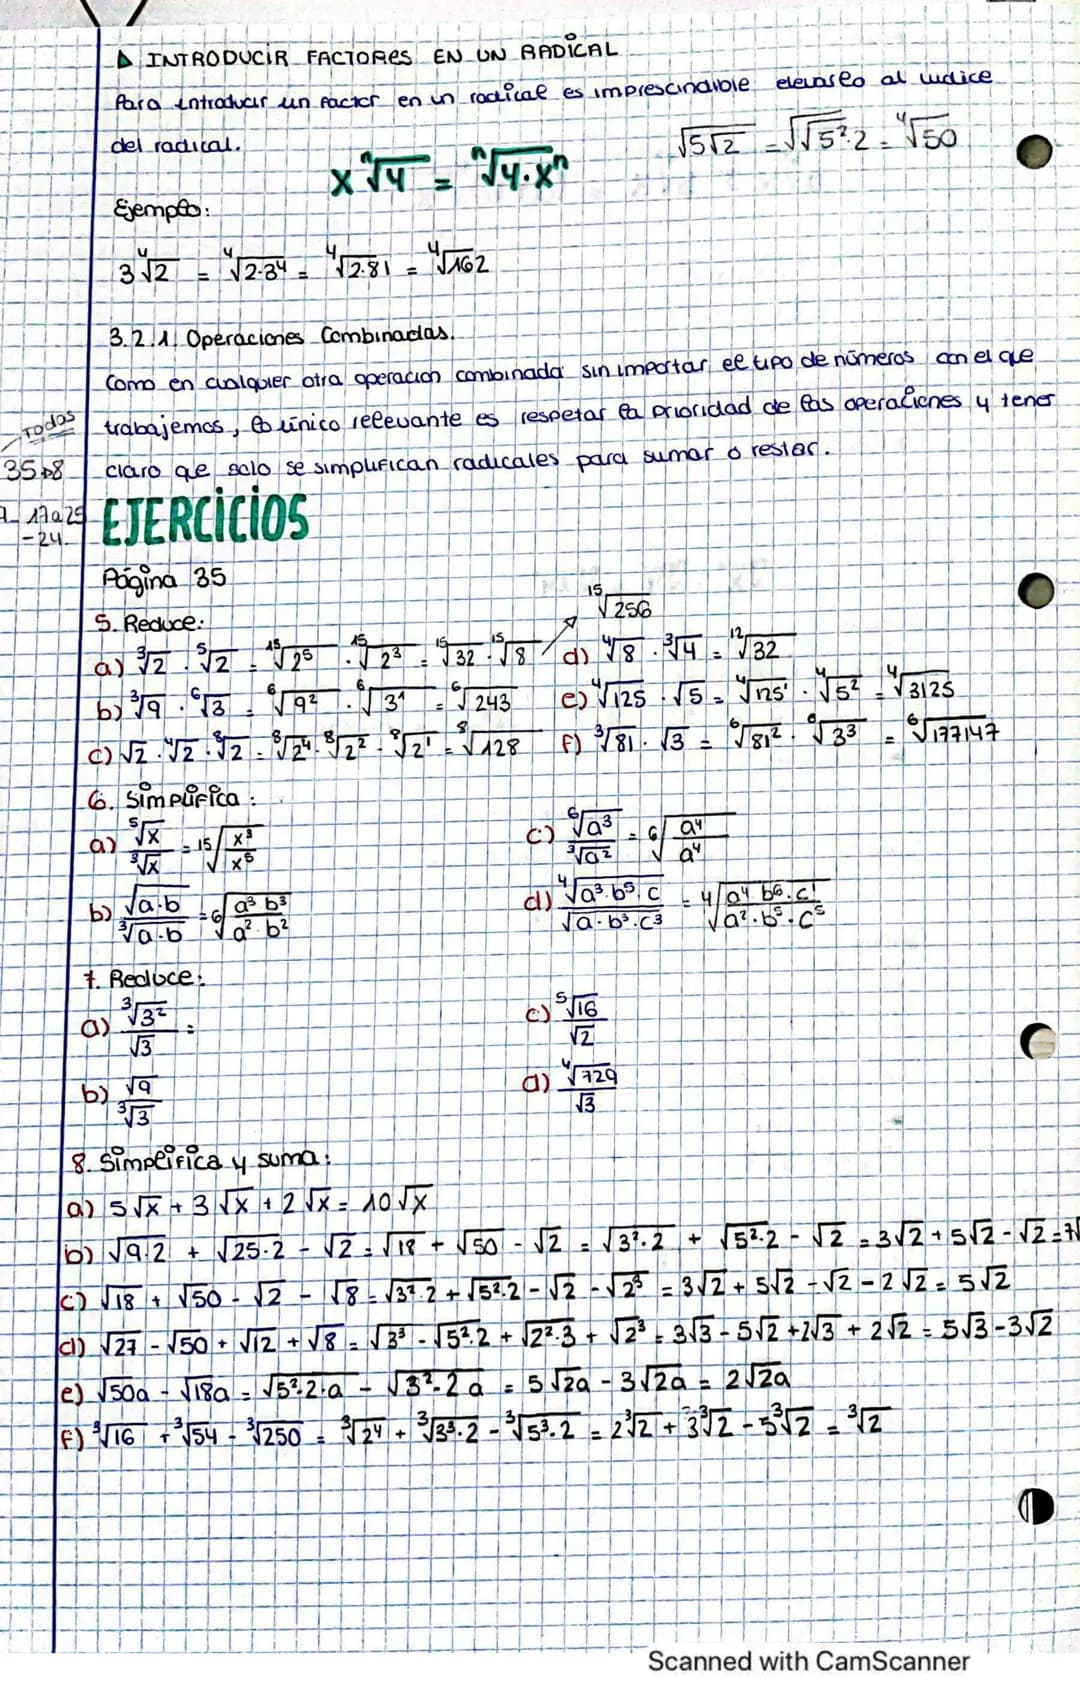 △ INTRODUCIR FACTORES EN UN RADICAL
Para introducir un factor en un radical es imprescindible elevarlo al índice
del radical.
√(5√2) = √√(5²·2) = ⁴√50
x ⁿ√y = ⁿ√(y·xⁿ)
Ejemplo:
3 ⁴√2 = ⁴√(2·3⁴) = ⁴√(2·81) = ⁴√162
3.2.1. Operaciones Combinadas.
Como en cualquier otra operacion combinada sin importar el tipo de números con el que
trabajemos, lo único relevante es respetar la prioridad de las operaciones y tener
claro que solo se simplifican radicales para sumar o restar.
Todos
EJERCICIOS
Página 35
5. Reduce:
¹⁵√256
a) ³√2 · ⁵√2 = ¹⁵√2⁵ · ¹⁵√2³ = ¹⁵√32 · ¹⁵√8
d) ⁴√8 · ³√4 = ¹²√32
b) ³√9 · ⁶√3 = ⁶√9² · ⁶√3¹ = ⁶√243
e) ⁴√125 · √5 = ⁴√125¹ · ⁴√5² = ⁴√3125
c) √2 · ⁴√2 · ⁸√2 = ⁸√2⁴ · ⁸√2² · ⁸√2¹ = ⁸√128
f) ³√81 · √3 = ⁶√81² · ⁶√3³ = ⁶√177147
6. Simplifica:
a) ⁵√x / ³√x = ¹⁵√(x³ / x⁵)
c) ⁶√a³ / ³√a² = ⁶√(a⁴ / a⁴)
b) √(a·b) / ³√(a·b) = ⁶√(a³ b³ / a²·b²)
d) ⁴√(a³·b⁵·c) / √(a·b³·c³) = ⁴√(a⁴ b⁶·c¹ / a²·b⁵·c⁵)
7. Reduce:
a) ³√3² / √3 =
c) ⁵√16 / √2
b) √9 / ³√3
d) ⁴√729 / √3
8. Simplifica y suma:
a) 5√x + 3√x + 2√x = 10√x
b) √(9·2) + √(25·2) - √2 = √18 + √50 - √2 = √(3²·2) + √(5²·2) - √2 = 3√2 + 5√2 - √2 = 7√
c) √18 + √50 - √2 - √8 = √(3²·2) + √(5²·2) - √2 - √2³ = 3√2 + 5√2 - √2 - 2√2 = 5√2
d) √27 - √50 + √12 + √8 = √3³ - √(5²·2) + √(2²·3) + √2³ = 3√3 - 5√2 + 2√3 + 2√2 = 5√3 - 3√2
e) √50a - √18a = √(5²·2·a) - √(3²·2a) = 5√2a - 3√2a = 2√2a
f) ³√16 + ³√54 - ³√250 = ³√2⁴ + ³√(3³·2) - ³√(5³·2) = 2³√2 + 3³√2 - 5³√2 = ³√2
Scanned with CamScanner